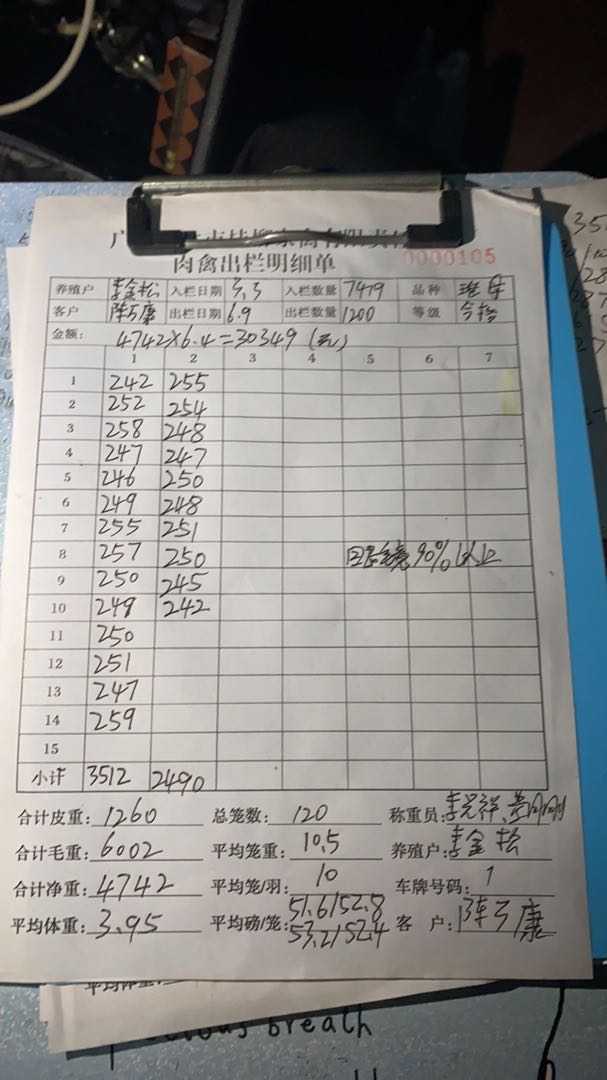 肉禽出栏明细单
0000105
养殖户 李金松 入栏日期 3.3 入栏数量 7479 品种
客户 陈子康 出栏日期 6.9 出栏数量 1200 等级 合格
金额: 4742×6.4=30349 (元)
1 2 3 4 5 6 7
1 242 255
2 252 254
3 258 248
4 247 247
5 246 250
6 249 248
7 255 251
8 257 250 90%以上
9 250 245
10 249 242
11 250
12 251
13 247
14 259
15
小计 3512 2490
合计皮重: 1260 总笼数: 120 称重员: 李光祥、
合计毛重: 6002 平均笼重: 10.5 养殖户: 李金松
合计净重: 4742 平均笼/羽: 10 车牌号码: 1
平均体重: 3.95 平均磅/笼: 51.6/52.8 客 户: 陈子康
53.2/52.4
breath